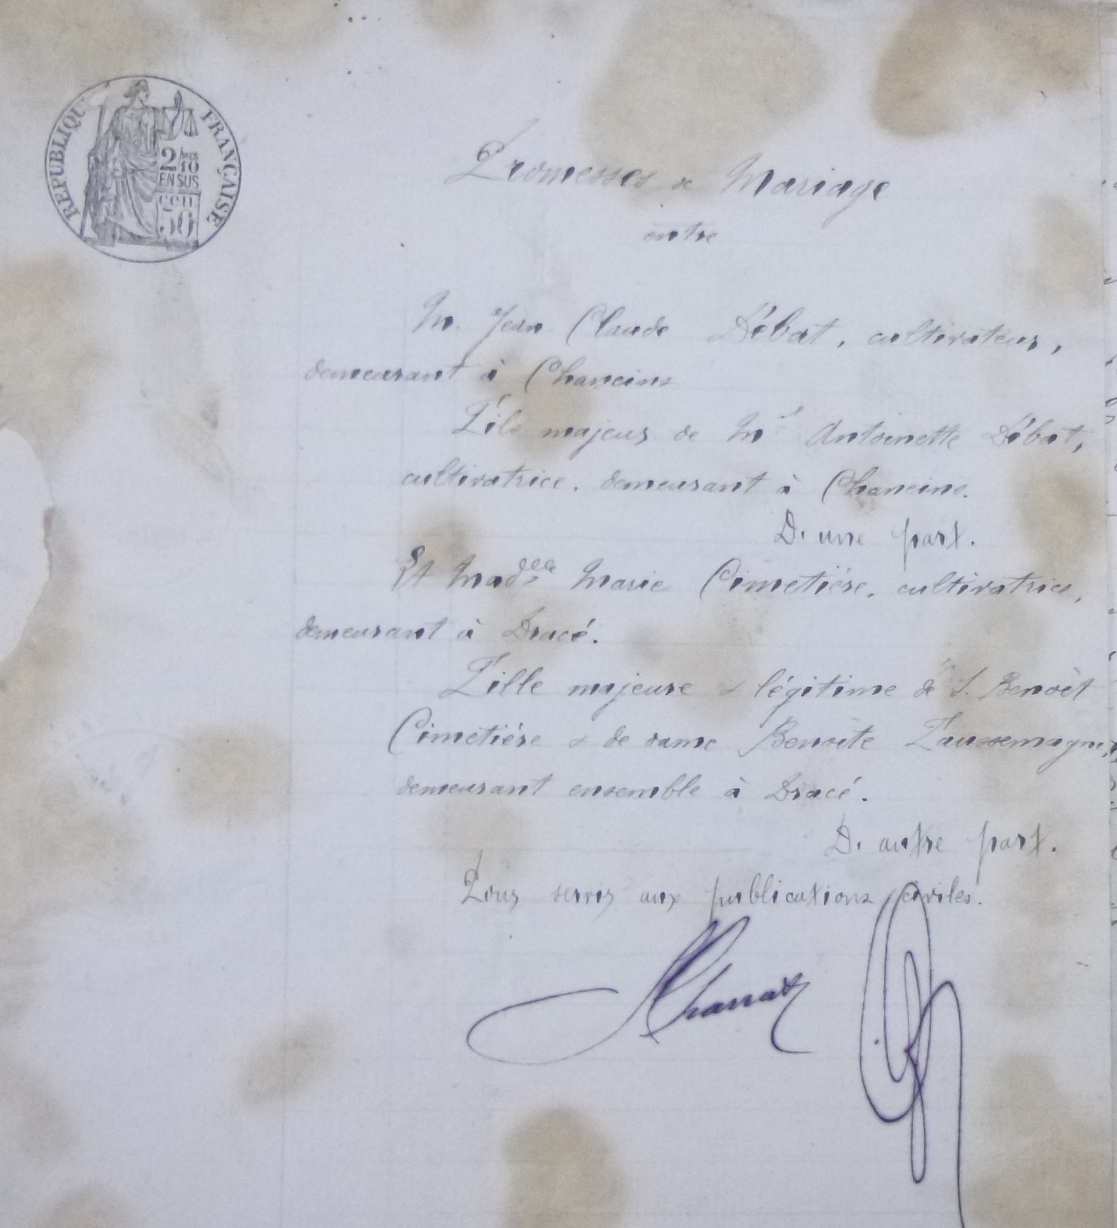 RÉPUBLIQUE FRANÇAISE
2/10
EN SUS
50
Promesses de Mariage
entre
M. Jean Claude Débat, cultivateur,
demeurant à Chaneins
Fils majeur de Me Antoinette Débat,
cultivatrice, demeurant à Chaneins.
D'une part.
Et Madelle Marie Cimetière, cultivatrice,
demeurant à Dracé.
Fille majeure & légitime de S. Benoît
Cimetière & de dame Benoîte Laussemagne,
demeurant ensemble à Dracé.
D'autre part.
Pour servir aux publications civiles.